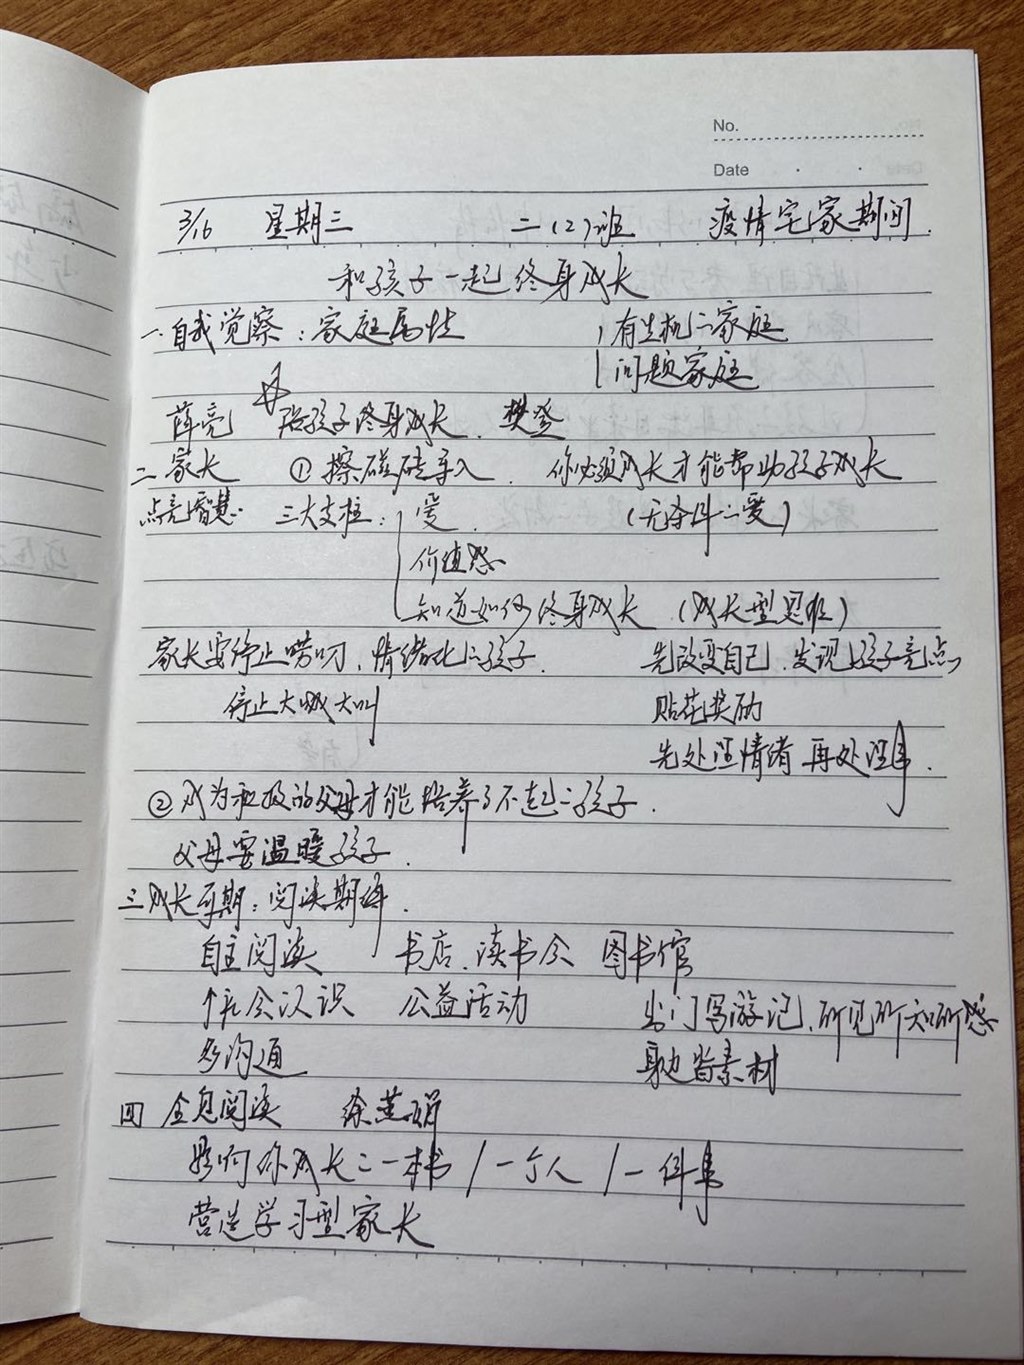 No.
Date
3/16 星期三 二(2)班 疫情宅家期间.
和孩子一起终身成长
一.自我觉察:家庭属性 有生机二家庭
问题家庭
薛亮 陪孩子终身成长. 樊登
二家长 ①擦磁砖导入. 你必须成长才能帮助孩子成长
点亮智慧. 三大支柱: 爱. (无条件二爱)
价值感
知道如何终身成长 (成长型思维)
家长要停止唠叨,情绪化二孩子. 先改变自己.发现孩子亮点,
停止大喊大叫 贴花奖励
先处理情绪 再处理事.
②成为积极的父母才能培养了不起二孩子.
父母要温暖孩子.
三成长 期:阅读期待.
自主阅读 书店.读书会 图书馆
社会认识 公益活动 出门写游记.所见所知所感
多沟通 身边皆素材
四 全息阅读
影响你成长二一本书/一个人/一件事
营造学习型家长